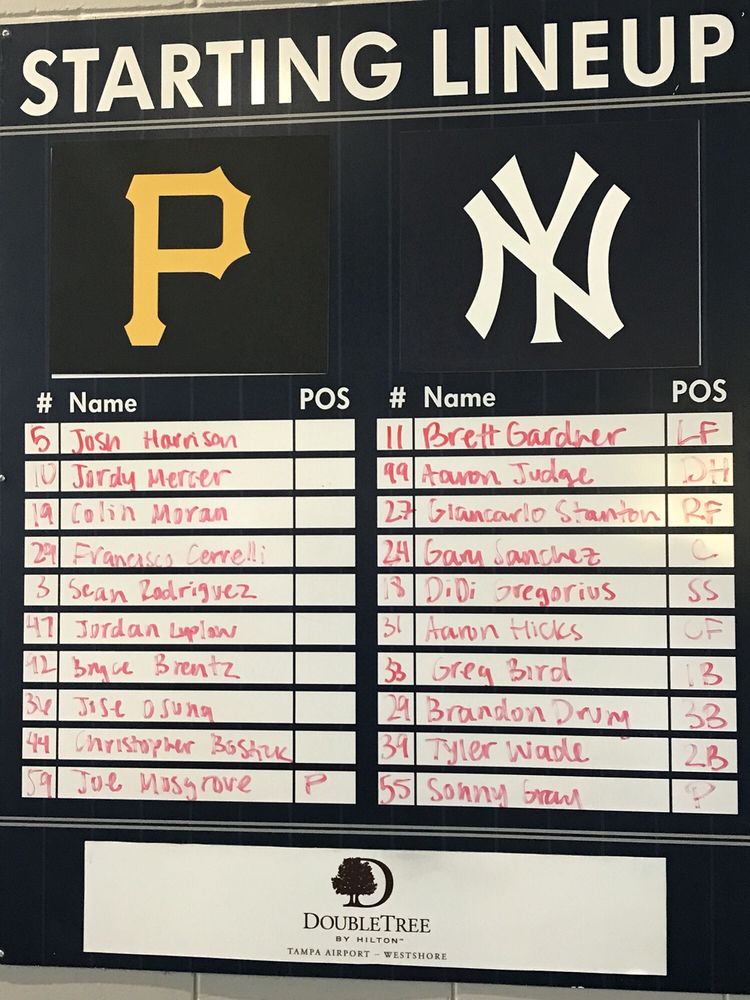 STARTING LINEUP
P
NY
# Name POS
5 Josh Harrison
10 Jordy Mercer
19 Colin Moran
29 Francisco Cerrelli
3 Sean Rodriguez
47 Jordan Luplow
42 Bryce Brentz
36 Jose Osuna
44 Christopher Bostick
59 Joe Musgrove P
# Name POS
11 Brett Gardner LF
99 Aaron Judge DH
27 Giancarlo Stanton RF
24 Gary Sanchez C
18 DiDi Gregorius SS
31 Aaron Hicks CF
33 Greg Bird 1B
29 Brandon Drury 3B
39 Tyler Wade 2B
55 Sonny Gray P
D
DOUBLETREE
BY HILTON™
TAMPA AIRPORT - WESTSHORE